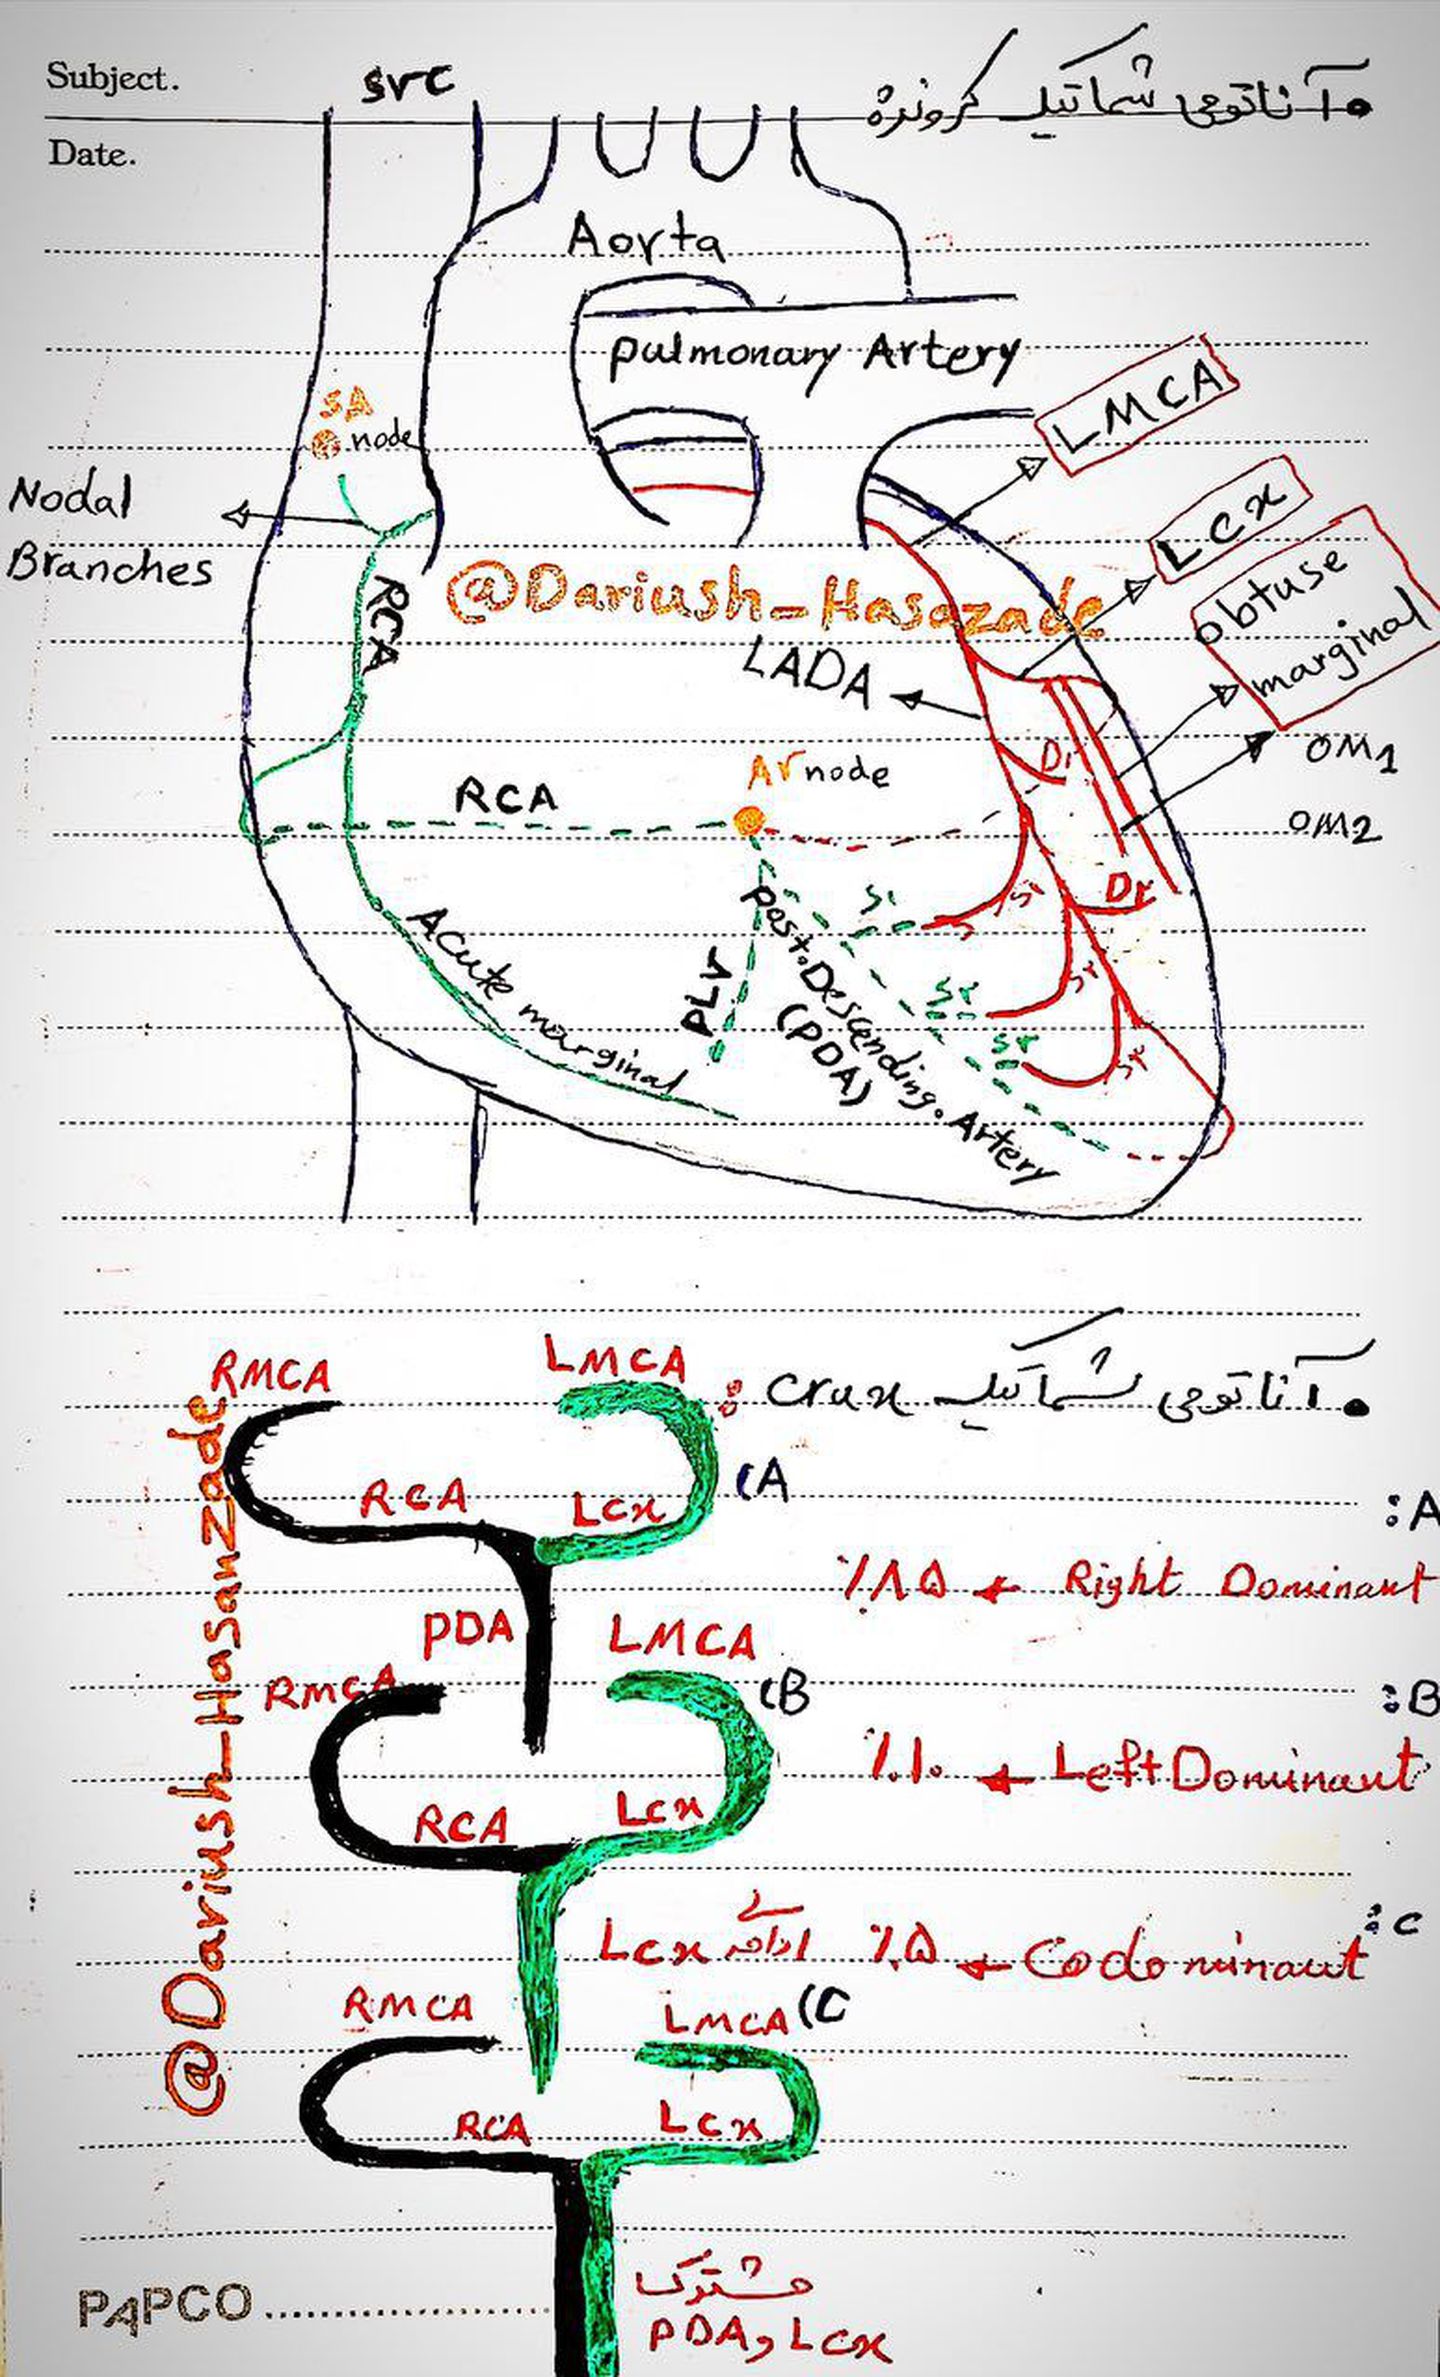 Subject.
SVC
• آناتومی شماتیک کرونری
Date.
Aorta
pulmonary Artery
LMCA
SA
node
Lcx
Nodal
Branches
obtuse
marginal
RCA
@Dariush_Hasazade
LADA
OM1
D1
AV node
RCA
OM2
D2
S1
S1
post. Descending. Artery
(PDA)
Acute marginal
PLV
S2
S2
S3
S3
• آناتومی شماتیک crux :
RMCA
LMCA
(A
RCA
Lcx
A:
Right Dominant ← ٪۸۵
PDA
LMCA
RMCA
(B
B:
Left Dominant ← ٪۱۰
RCA
Lcx
C:
Codominant ← ٪۵
ادامه‌ی Lcx
RMCA
LMCA
(C
RCA
Lcx
@Dariush_Hasanzade
مشترک
PDA و Lcx
PAPCO